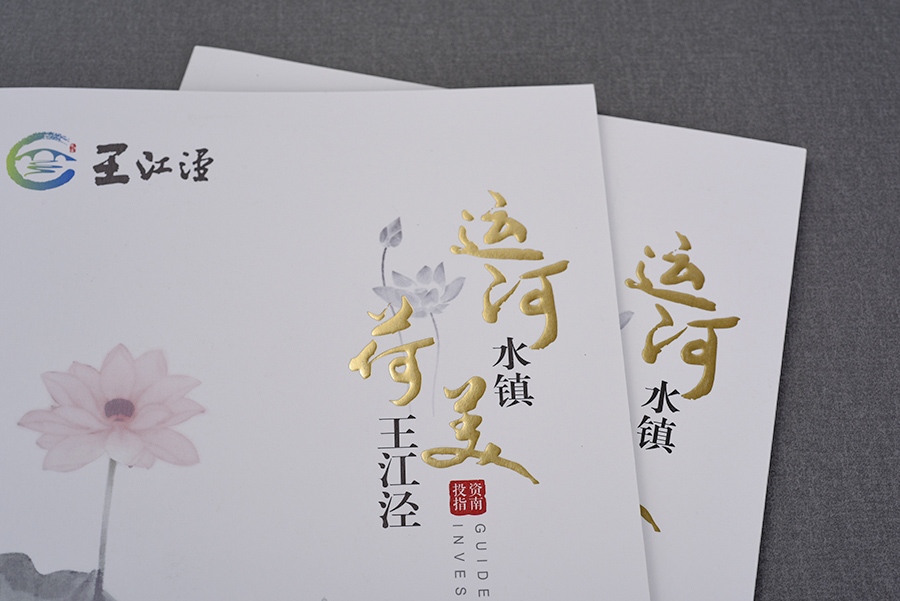 王江泾
运河水镇
荷美王江泾
投资
指南
GUIDE
INVES
运河水镇